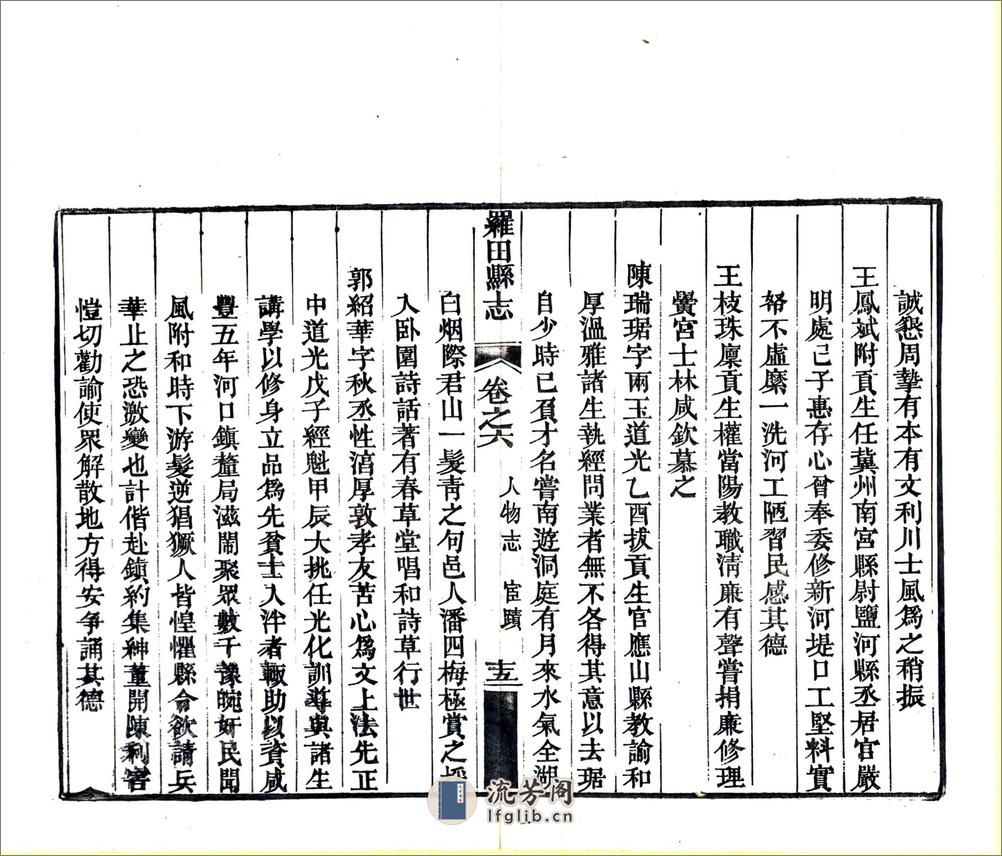 誠懇周摯有本有文利川士風爲之稍振
王鳳斌附貢生任冀州南宮縣尉鹽河縣丞居官嚴
明處己子惠存心曾奉委修新河堤口工堅料實
帑不虛縻一洗河工陋習民感其德
王枝珠廩貢生權當陽教職淸廉有聲嘗捐廉修理
黌宮士林咸欽慕之
陳瑞琚字雨玉道光乙酉拔貢生官應山縣教諭和
厚溫雅諸生執經問業者無不各得其意以去琚
自少時已負才名嘗南遊洞庭有月來水氣全湖
羅田縣志 卷之六 人物志 宦蹟 十五
白烟際君山一髮靑之句邑人潘四梅極賞之採
入臥園詩話著有春草堂唱和詩草行世
郭紹華字秋丞性湻厚敦孝友苦心爲文上法先正
中道光戊子經魁甲辰大挑任光化訓導與諸生
講學以修身立品爲先貧士入泮者輙助以資咸
豐五年河口鎭釐局滋閙聚眾數千豫皖奸民聞
風附和時下游髮逆猖獗人皆惶懼縣令欲請兵
華止之恐激變也計偕赴鎭約集紳董開陳利害
愷切勸諭使眾解散地方得安爭誦其德
流芳阁
lfglib.cn